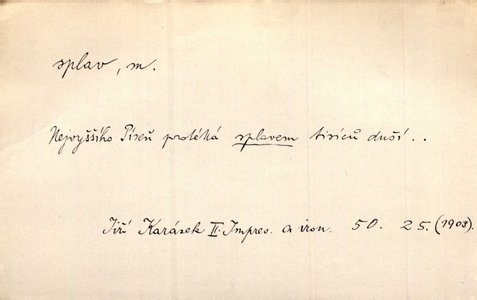 splav, m.
Nejvyššího Píseň protéká splavem tisíců duší..
Jiří Karásek II. Impres. a iron. 50. 25. (1903).